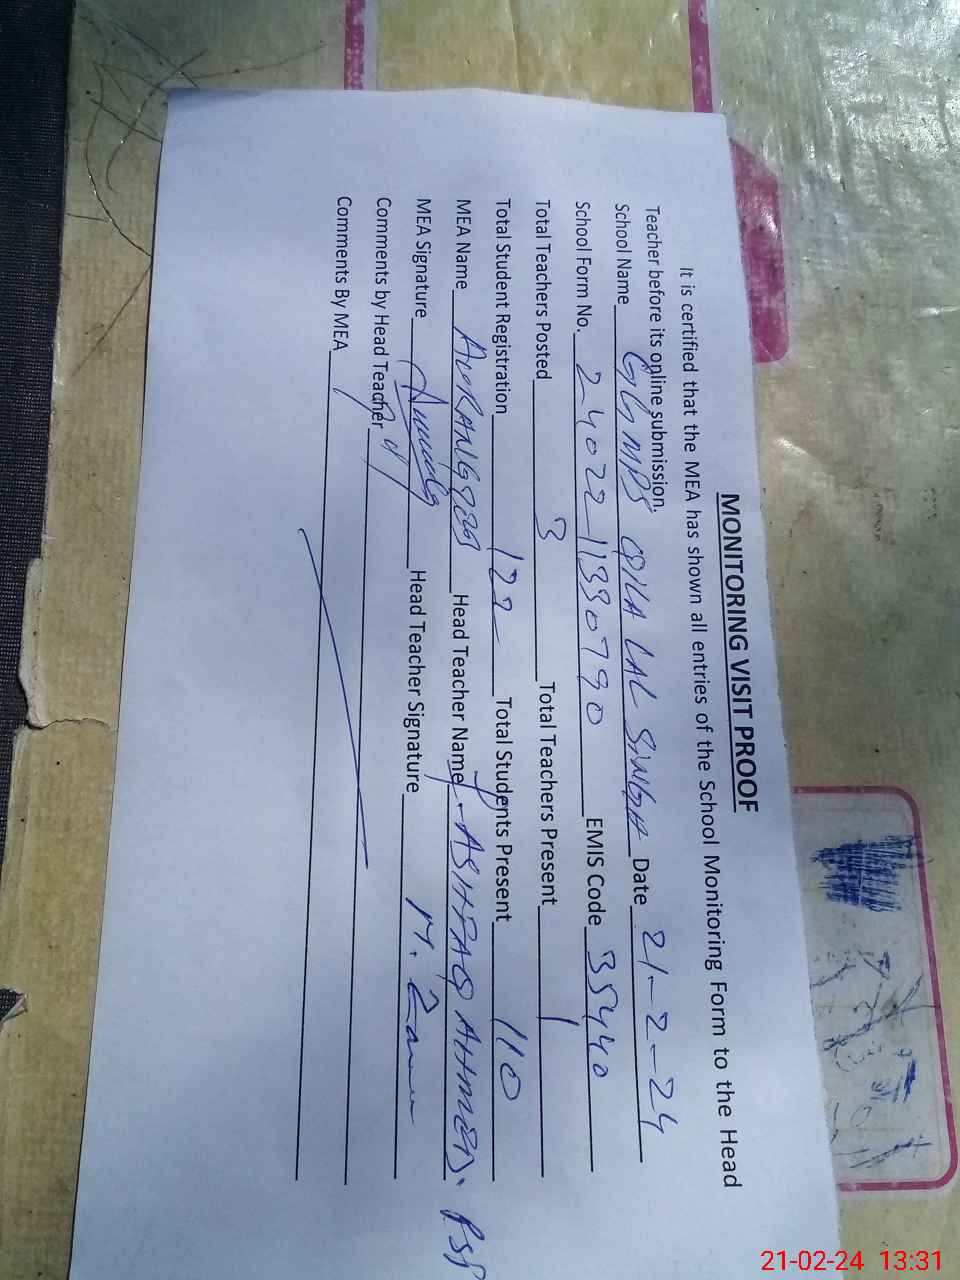 MONITORING VISIT PROOF
It is certified that the MEA has shown all entries of the School Monitoring Form to the Head
Teacher before its online submission.
School Name GGMPS QILA LAL SINGH Date 21-2-24
School Form No. 24022-11330790 EMIS Code 35440
Total Teachers Posted 3 Total Teachers Present 1
Total Student Registration 122 Total Students Present 110
MEA Name AURANGZEB Head Teacher Name ASHFAQ AHMED. PST
MEA Signature Head Teacher Signature M.
Comments by Head Teacher
Comments By MEA
21-02-24 13:31